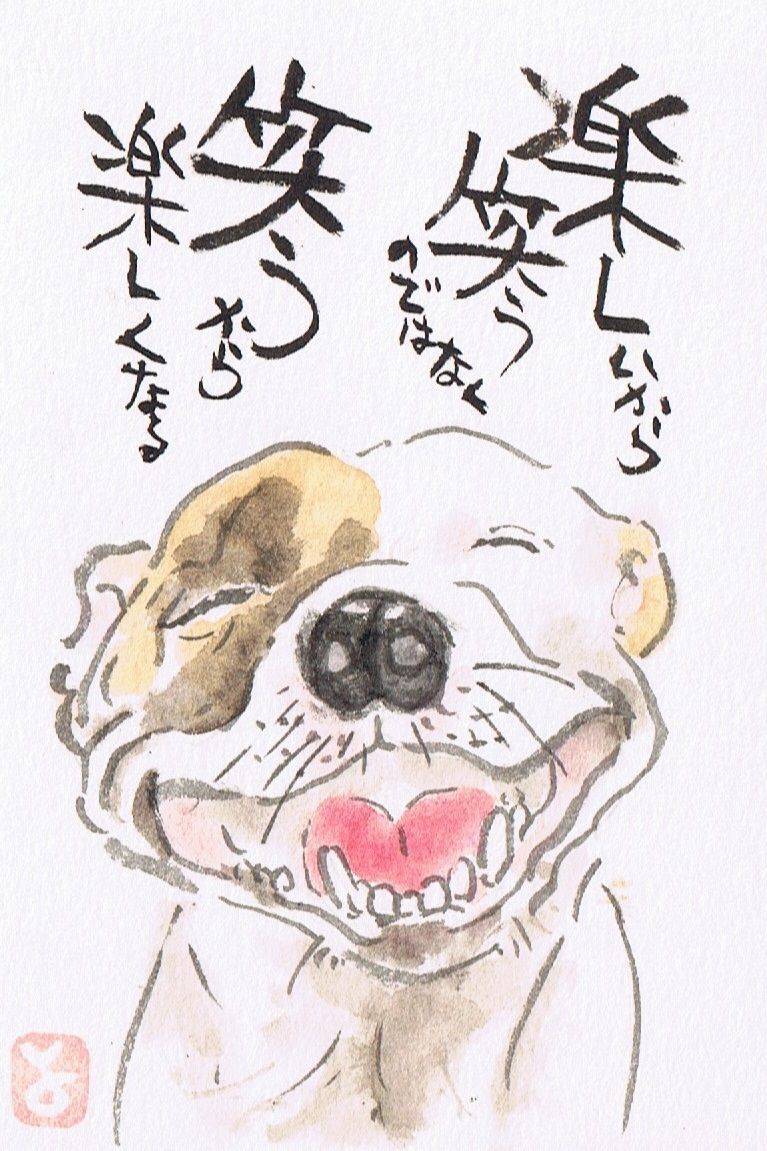 楽しいから
笑う
のではなく
笑う
から
楽しくなる
と